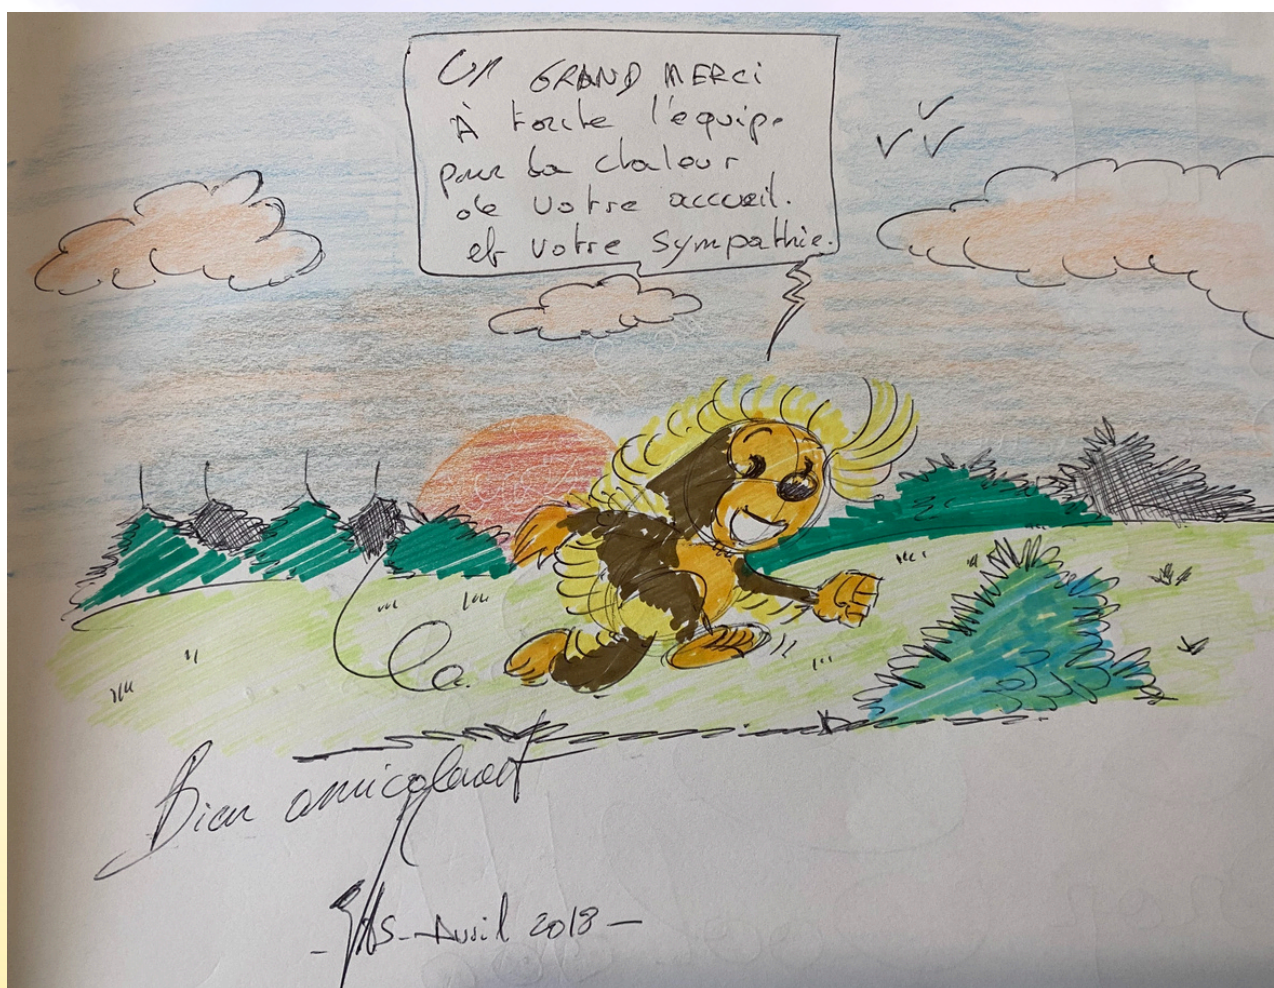 Un GRAND MERCi
À toute l'équipe
pour la chaleur
de votre accueil.
et votre sympathie.
Bien amicalement
Avril 2018